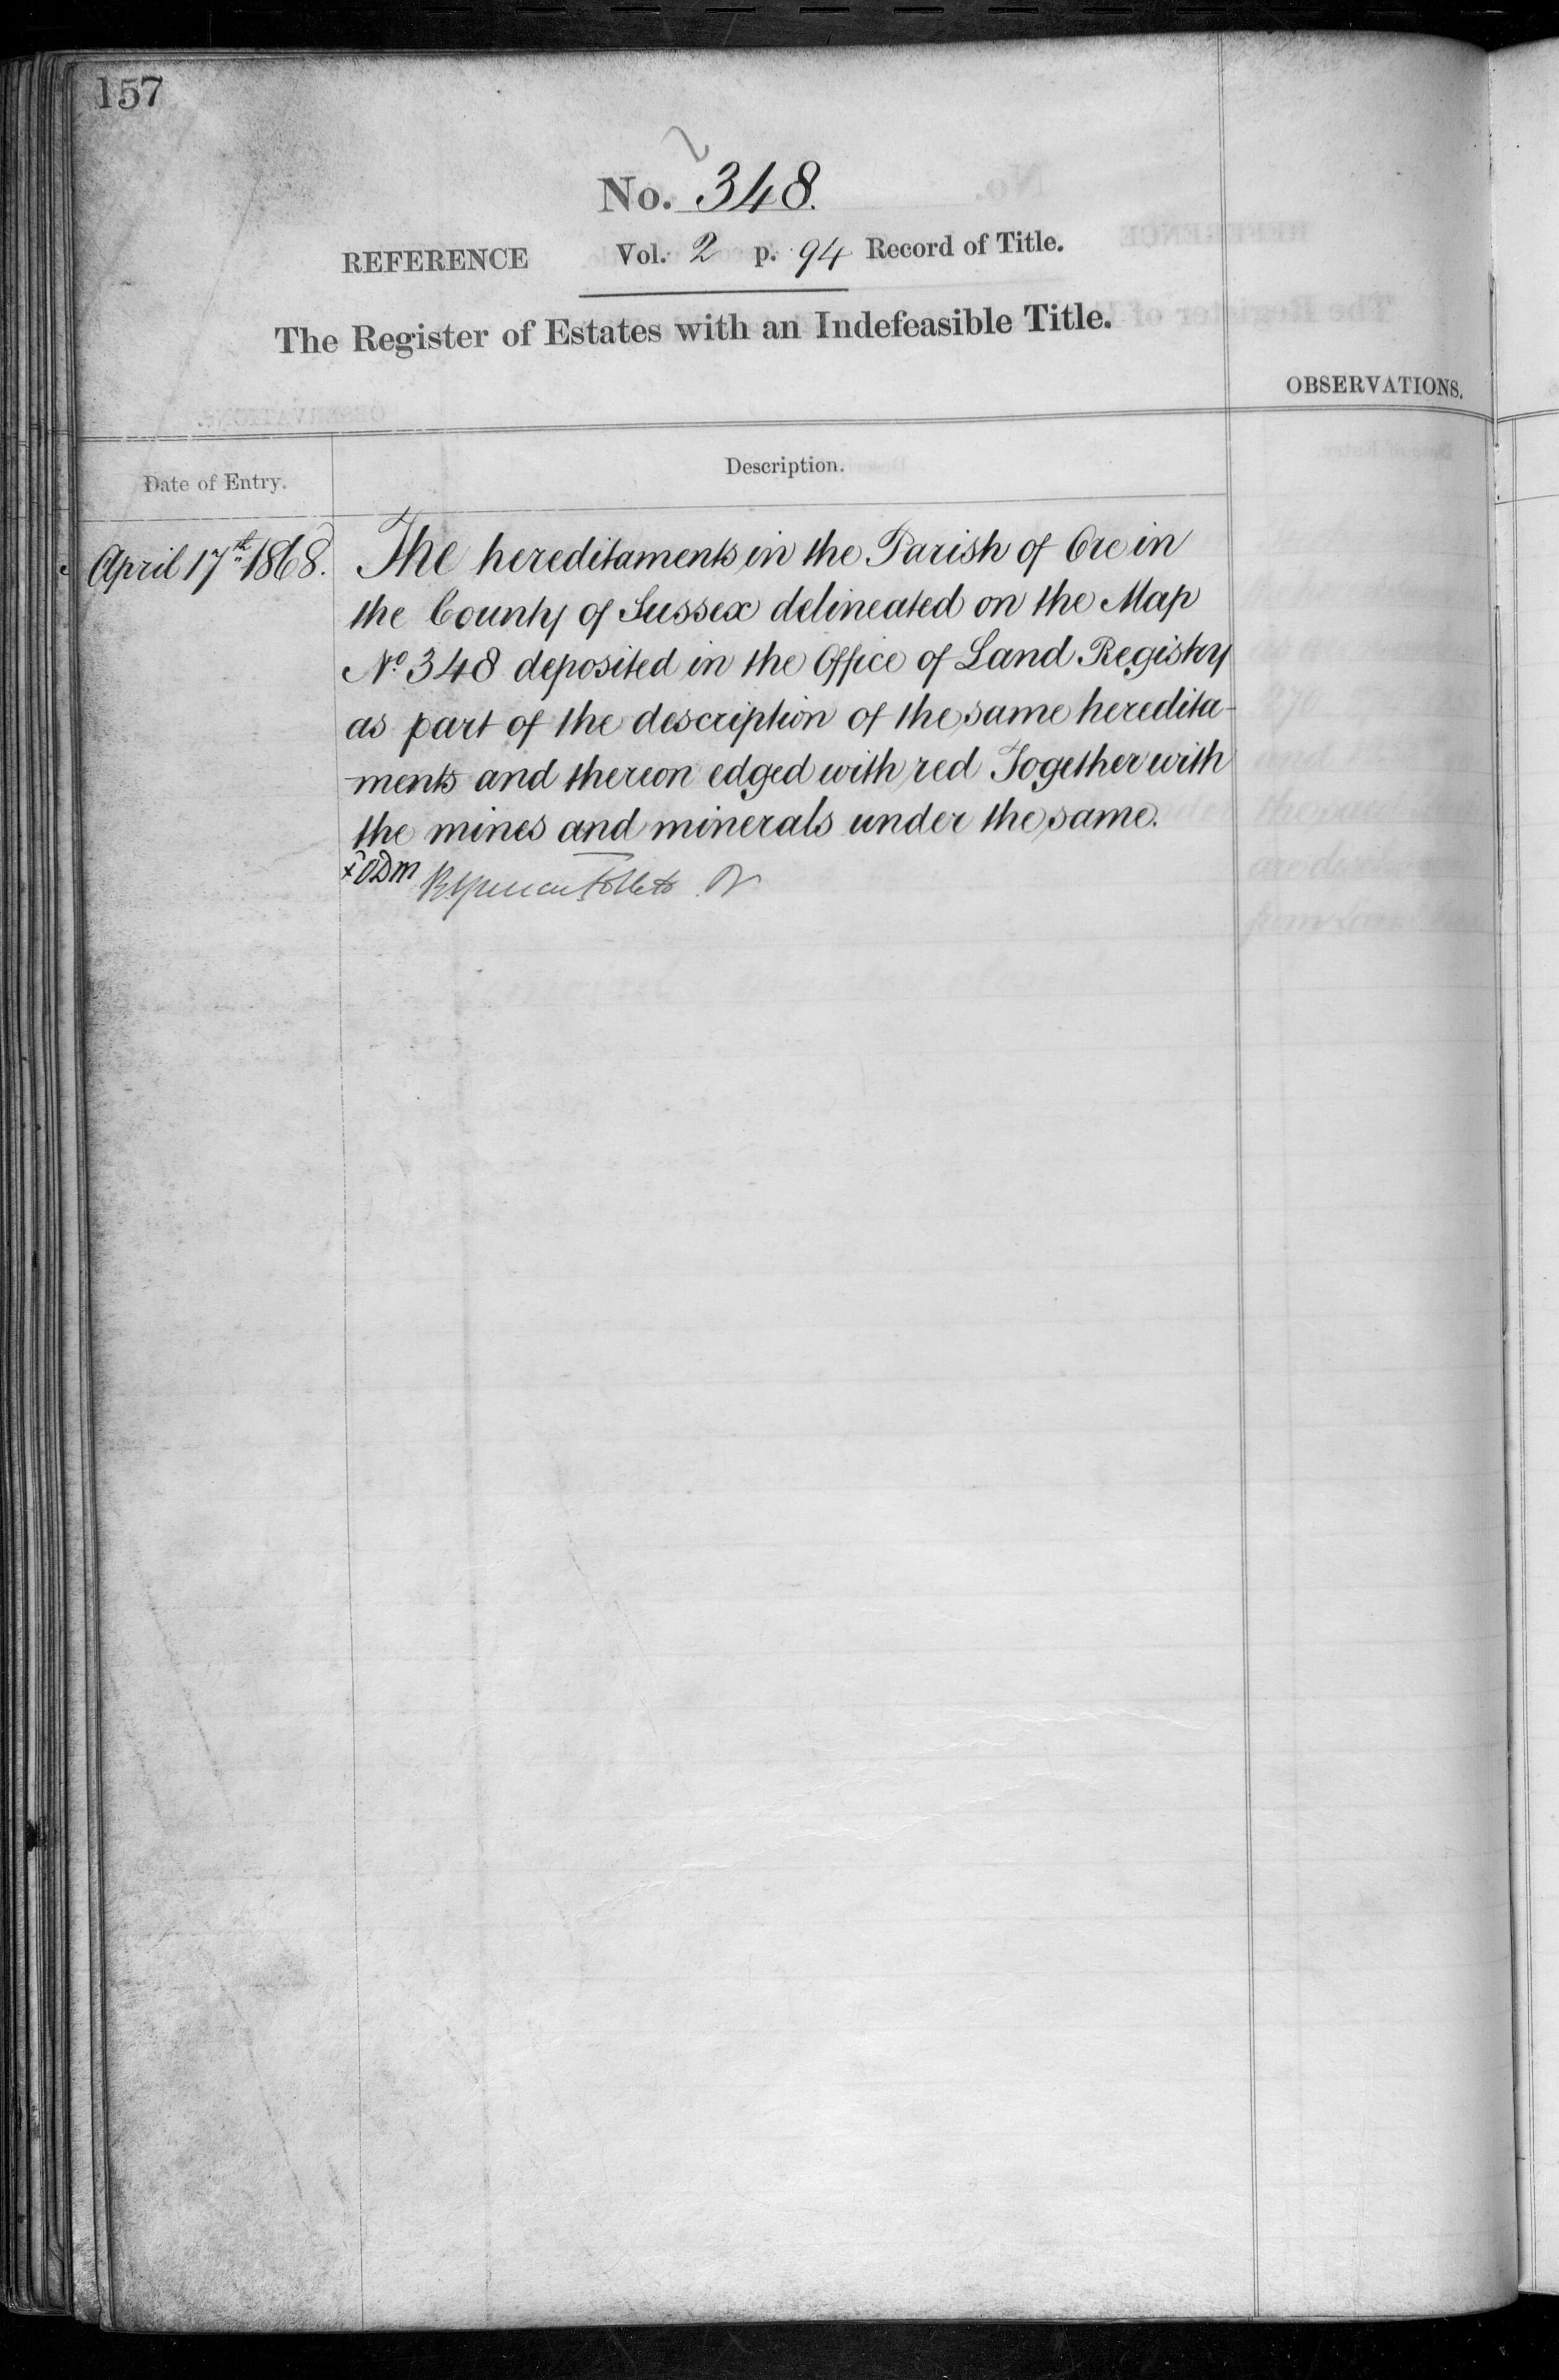 157
No. 348.
REFERENCE Vol. 2 p. 94 Record of Title.
The Register of Estates with an Indefeasible Title.
OBSERVATIONS.
Date of Entry.
Description.
April 17th 1868.
The hereditaments in the Parish of Ore in
the County of Sussex delineated on the Map
No. 348 deposited in the Office of Land Registry
as part of the description of the same heredita-
-ments and thereon edged with red Together with
the mines and minerals under the same.